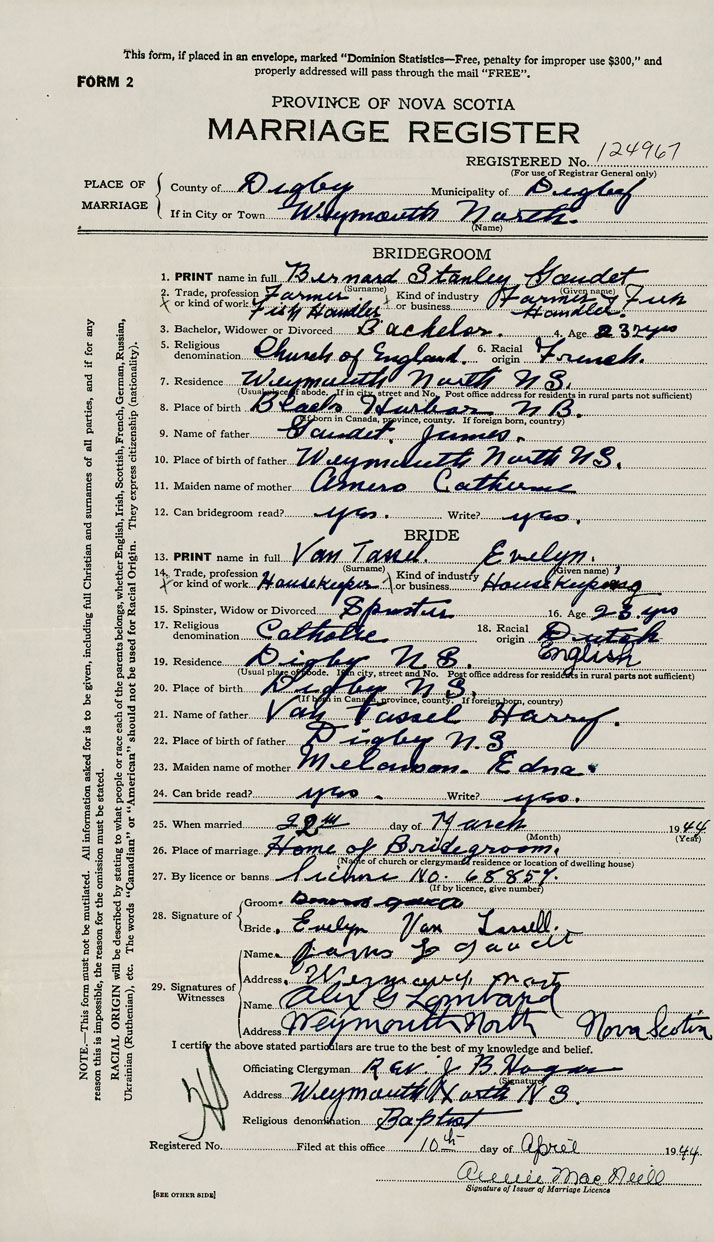 This form, if placed in an envelope, marked "Dominion Statistics—Free, penalty for improper use $300," and
properly addressed will pass through the mail "FREE".
FORM 2
PROVINCE OF NOVA SCOTIA
MARRIAGE REGISTER
REGISTERED No. 124967
(For use of Registrar General only)
PLACE OF MARRIAGE
County of Digby Municipality of Digby
If in City or Town Weymouth North.
(Name)
BRIDEGROOM
1. PRINT name in full Bernard Stanley Gaudet
(Surname) (Given name)
2. Trade, profession or kind of work. Farmer. Fish Handler Kind of industry or business Farmer & Fish Handler.
3. Bachelor, Widower or Divorced Bachelor. 4. Age 23 yrs
5. Religious denomination Church of England. 6. Racial origin French.
7. Residence Weymouth North N.S.
(Usual place of abode. If in city, street and No. Post office address for residents in rural parts not sufficient)
8. Place of birth Blacks Harbor N.B.
(If born in Canada, province, county. If foreign born, country)
9. Name of father Gaudet, James.
10. Place of birth of father Weymouth North N.S.
11. Maiden name of mother Amero Catherine
12. Can bridegroom read? yes. Write? yes.
BRIDE
13. PRINT name in full Van Tassel. Evelyn.
(Surname) (Given name)
14. Trade, profession or kind of work. Housekeeper Kind of industry or business Housekeeping
15. Spinster, Widow or Divorced Spinster 16. Age 23 yrs
17. Religious denomination Catholic 18. Racial origin Dutch English
19. Residence Digby N.S.
(Usual place of abode. If in city, street and No. Post office address for residents in rural parts not sufficient)
20. Place of birth Digby N.S.
(If born in Canada, province, county. If foreign born, country)
21. Name of father Van Tassel Harry.
22. Place of birth of father Digby N.S
23. Maiden name of mother Melanson. Edna.
24. Can bride read? yes. Write? yes.
25. When married 22nd day of March 1944
(Month) (Year)
26. Place of marriage Home of Bridegroom.
(Name of church or clergyman's residence or location of dwelling house)
27. By licence or banns license No. 68857.
(If by licence, give number)
28. Signature of
Groom
Bride Evelyn Van Tassell.
29. Signatures of Witnesses
Name James L Gaudet
Address Weymouth North
Name Alex G Lombard
Address Weymouth North Nova Scotia
I certify the above stated particulars are true to the best of my knowledge and belief.
Officiating Clergyman Rev. J. B. Hogan
(Signature)
Address Weymouth North N.S.
Religious denomination Baptist
Registered No. Filed at this office 10th day of April 1944
Annie MacNeill
Signature of Issuer of Marriage Licence
[SEE OTHER SIDE]
NOTE.—This form must not be mutilated. All information asked for is to be given, including full Christian and surnames of all parties, and if for any
reason this is impossible, the reason for the omission must be stated.
RACIAL ORIGIN will be described by stating to what people or race each of the parents belongs, whether English, Irish, Scottish, French, German, Russian,
Ukrainian (Ruthenian), etc. The words "Canadian" or "American" should not be used for Racial Origin. They express citizenship (nationality).